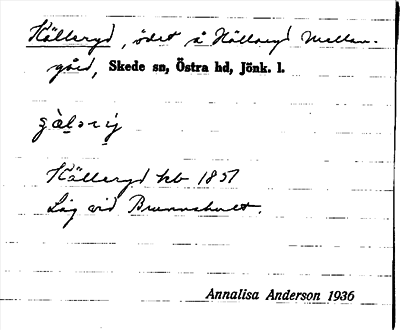 Hälleryd, ödet å Hälleryd Mellan-
gård, Skede sn, Östra hd, Jönk. l.
Hälleryd kb 1857
Låg vid Brunnshult.
Annalisa Anderson 1936